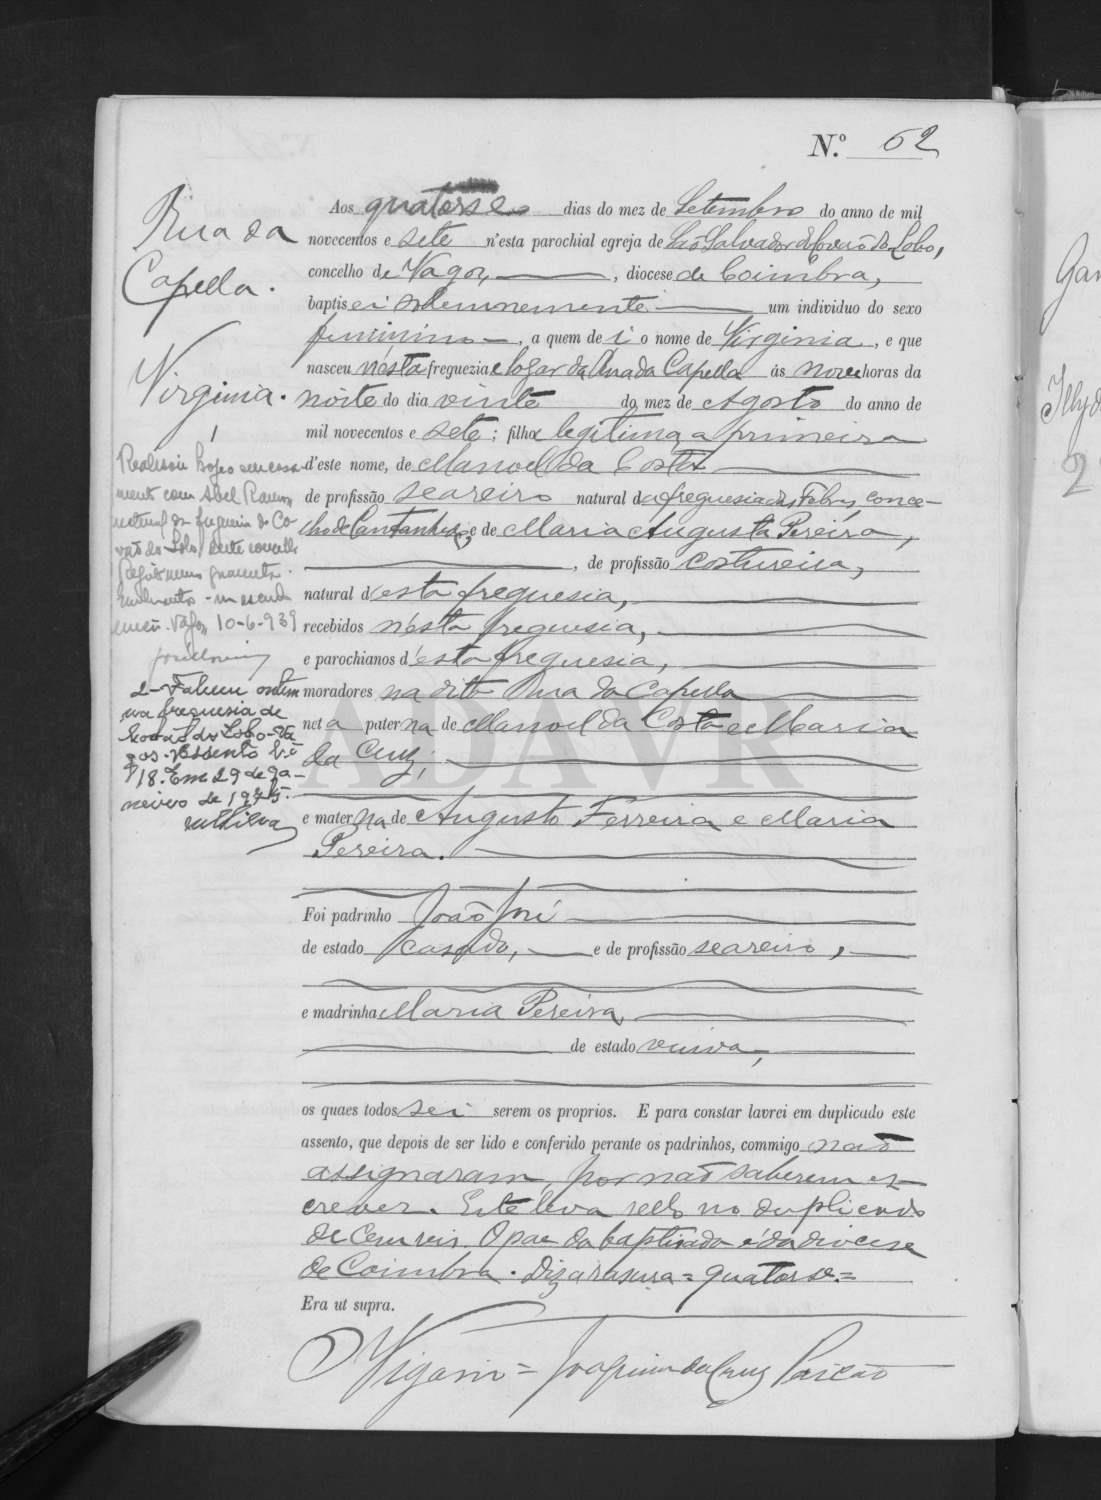 N.º 62
Rua da
Capella.
Virginia.
Aos quatorse dias do mez de Setembro do anno de mil
novecentos e sete n'esta parochial egreja de São Salvador de Covão do Lobo,
concelho de Vagos, diocese de Coimbra,
baptisei solemnemente um individuo do sexo
feminino, a quem dei o nome de Virginia, e que
nasceu n'esta freguezia e logar da Rua da Capella ás nove horas da
noite do dia vinte do mez de Agosto do anno de
mil novecentos e sete; filha legitima, a primeira
d'este nome, de Manoel da Costa
de profissão seareiro natural da freguesia das Febres, conce-
lho de Cantanhede, e de Maria Augusta Pereira,
, de profissão costureira,
natural d'esta freguesia,
recebidos n'esta freguesia,
e parochianos d'esta freguesia,
moradores na dita Rua da Capella
neta paterna de Manoel da Costa e Maria
da Cruz;
e materna de Augusto Ferreira e Maria
Pereira.
Foi padrinho João José
de estado casado, e de profissão seareiro,
e madrinha Maria Pereira,
de estado viuva,
os quaes todos sei serem os proprios. E para constar lavrei em duplicado este
assento, que depois de ser lido e conferido perante os padrinhos, commigo não
assignaram, por não saberem es-
crever. Este leva sello no duplicado
de cem reis. O pae da baptisada é da diocese
de Coimbra. Diz a rasura = quatorse. =
Era ut supra.
O Vigario = Joaquim da Cruz Paixão
casa-
mento com Abel
natural da freguesia do Co-
vão do Lobo, deste concelho
Vagos, 10-6-939
2- Faleceu ontem
na freguesia de
Covão do Lobo-Va-
gos. Assento N.º
18. Em 29 de Ja-
neiro de 1975.
ADAVR